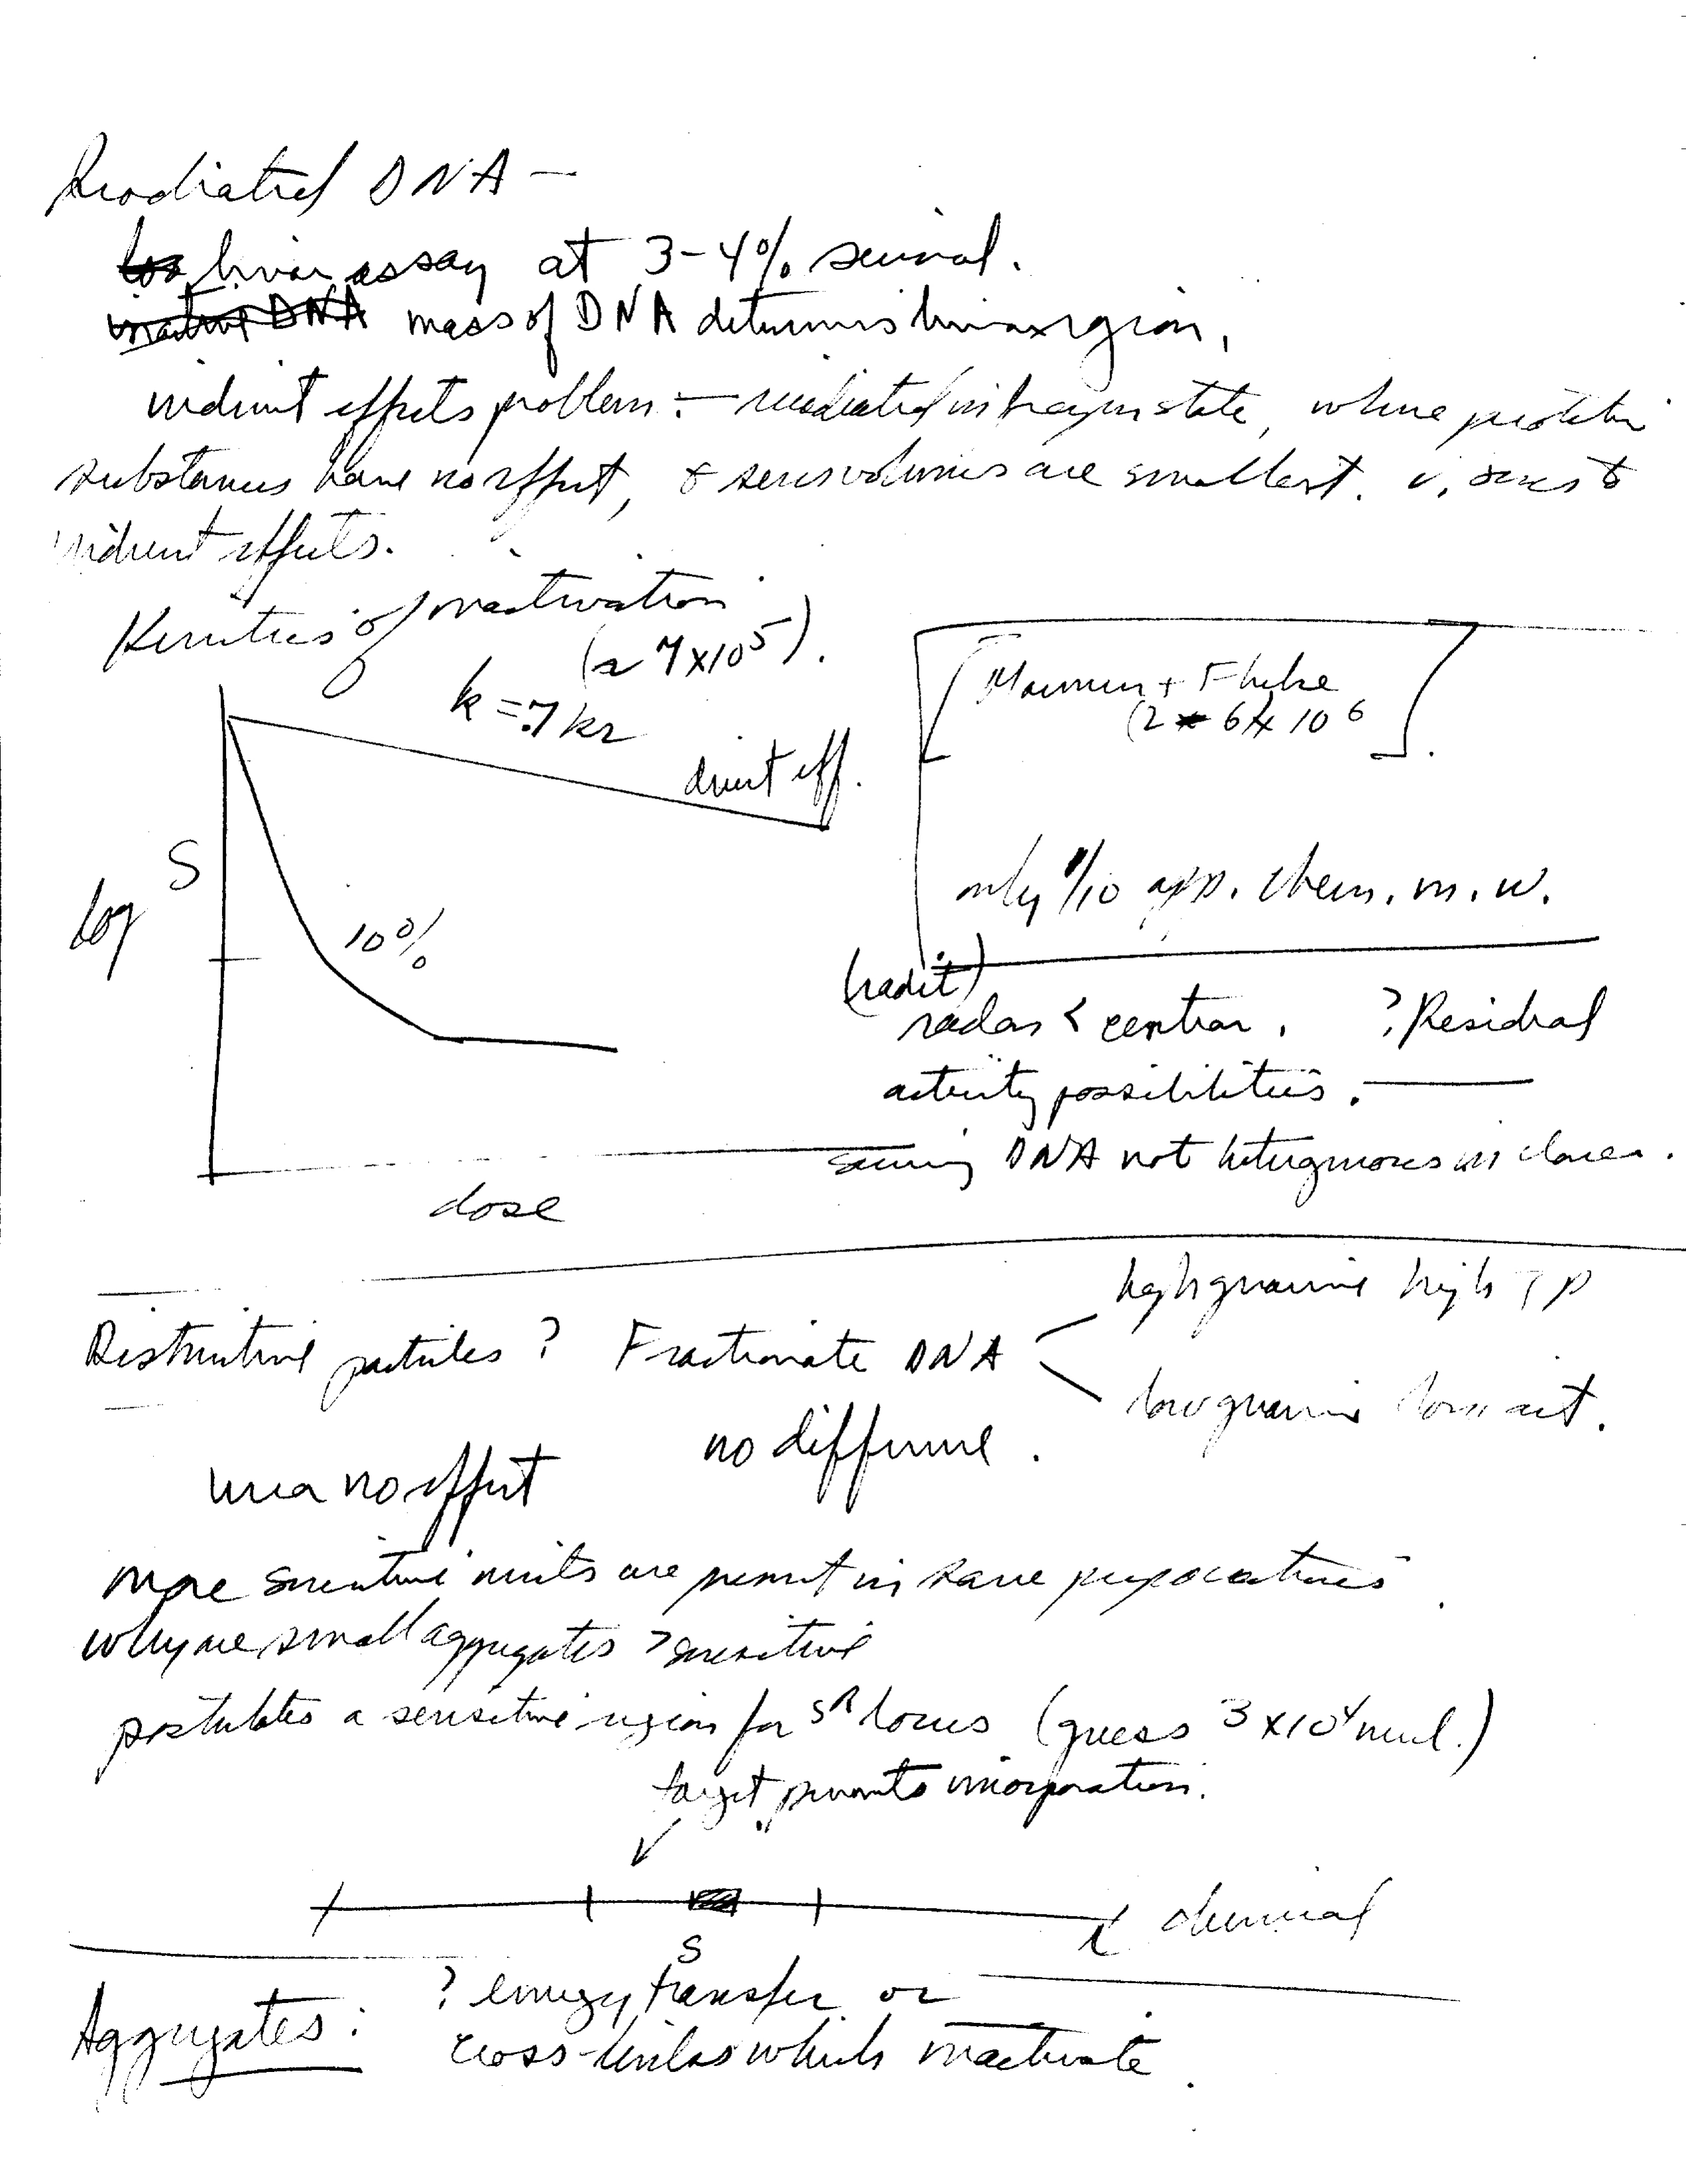 Irradiated DNA —
linear assay at 3-4% survival.
mass of DNA determines linear region.
indirect effects problem :- irradiated in frozen state, where protective
substances have no effect, & sens volumes are smallest. v. sens to
indirect effects.
Kinetics of inactivation
(≈ 7x10⁵).
k = .7 kr
direct eff.
log S
10%
dose
(2 6) x 10⁶
only 1/10 app. chem. m. w.
(radit)
? Residual
activity possibilities.
DNA not heterogeneous in
Distinctive particles ? Fractionate DNA
high guanine high TP
low guanine low act.
no difference.
urea no effect
more sensitive units are present in same preparations.
why are small aggregates > sensitive
postulates a sensitive region for SR locus (guess 3 x 10⁴ nucl.)
target prevents incorporation.
S
chemical
Aggregates : ? energy transfer or
cross-links which inactivate.